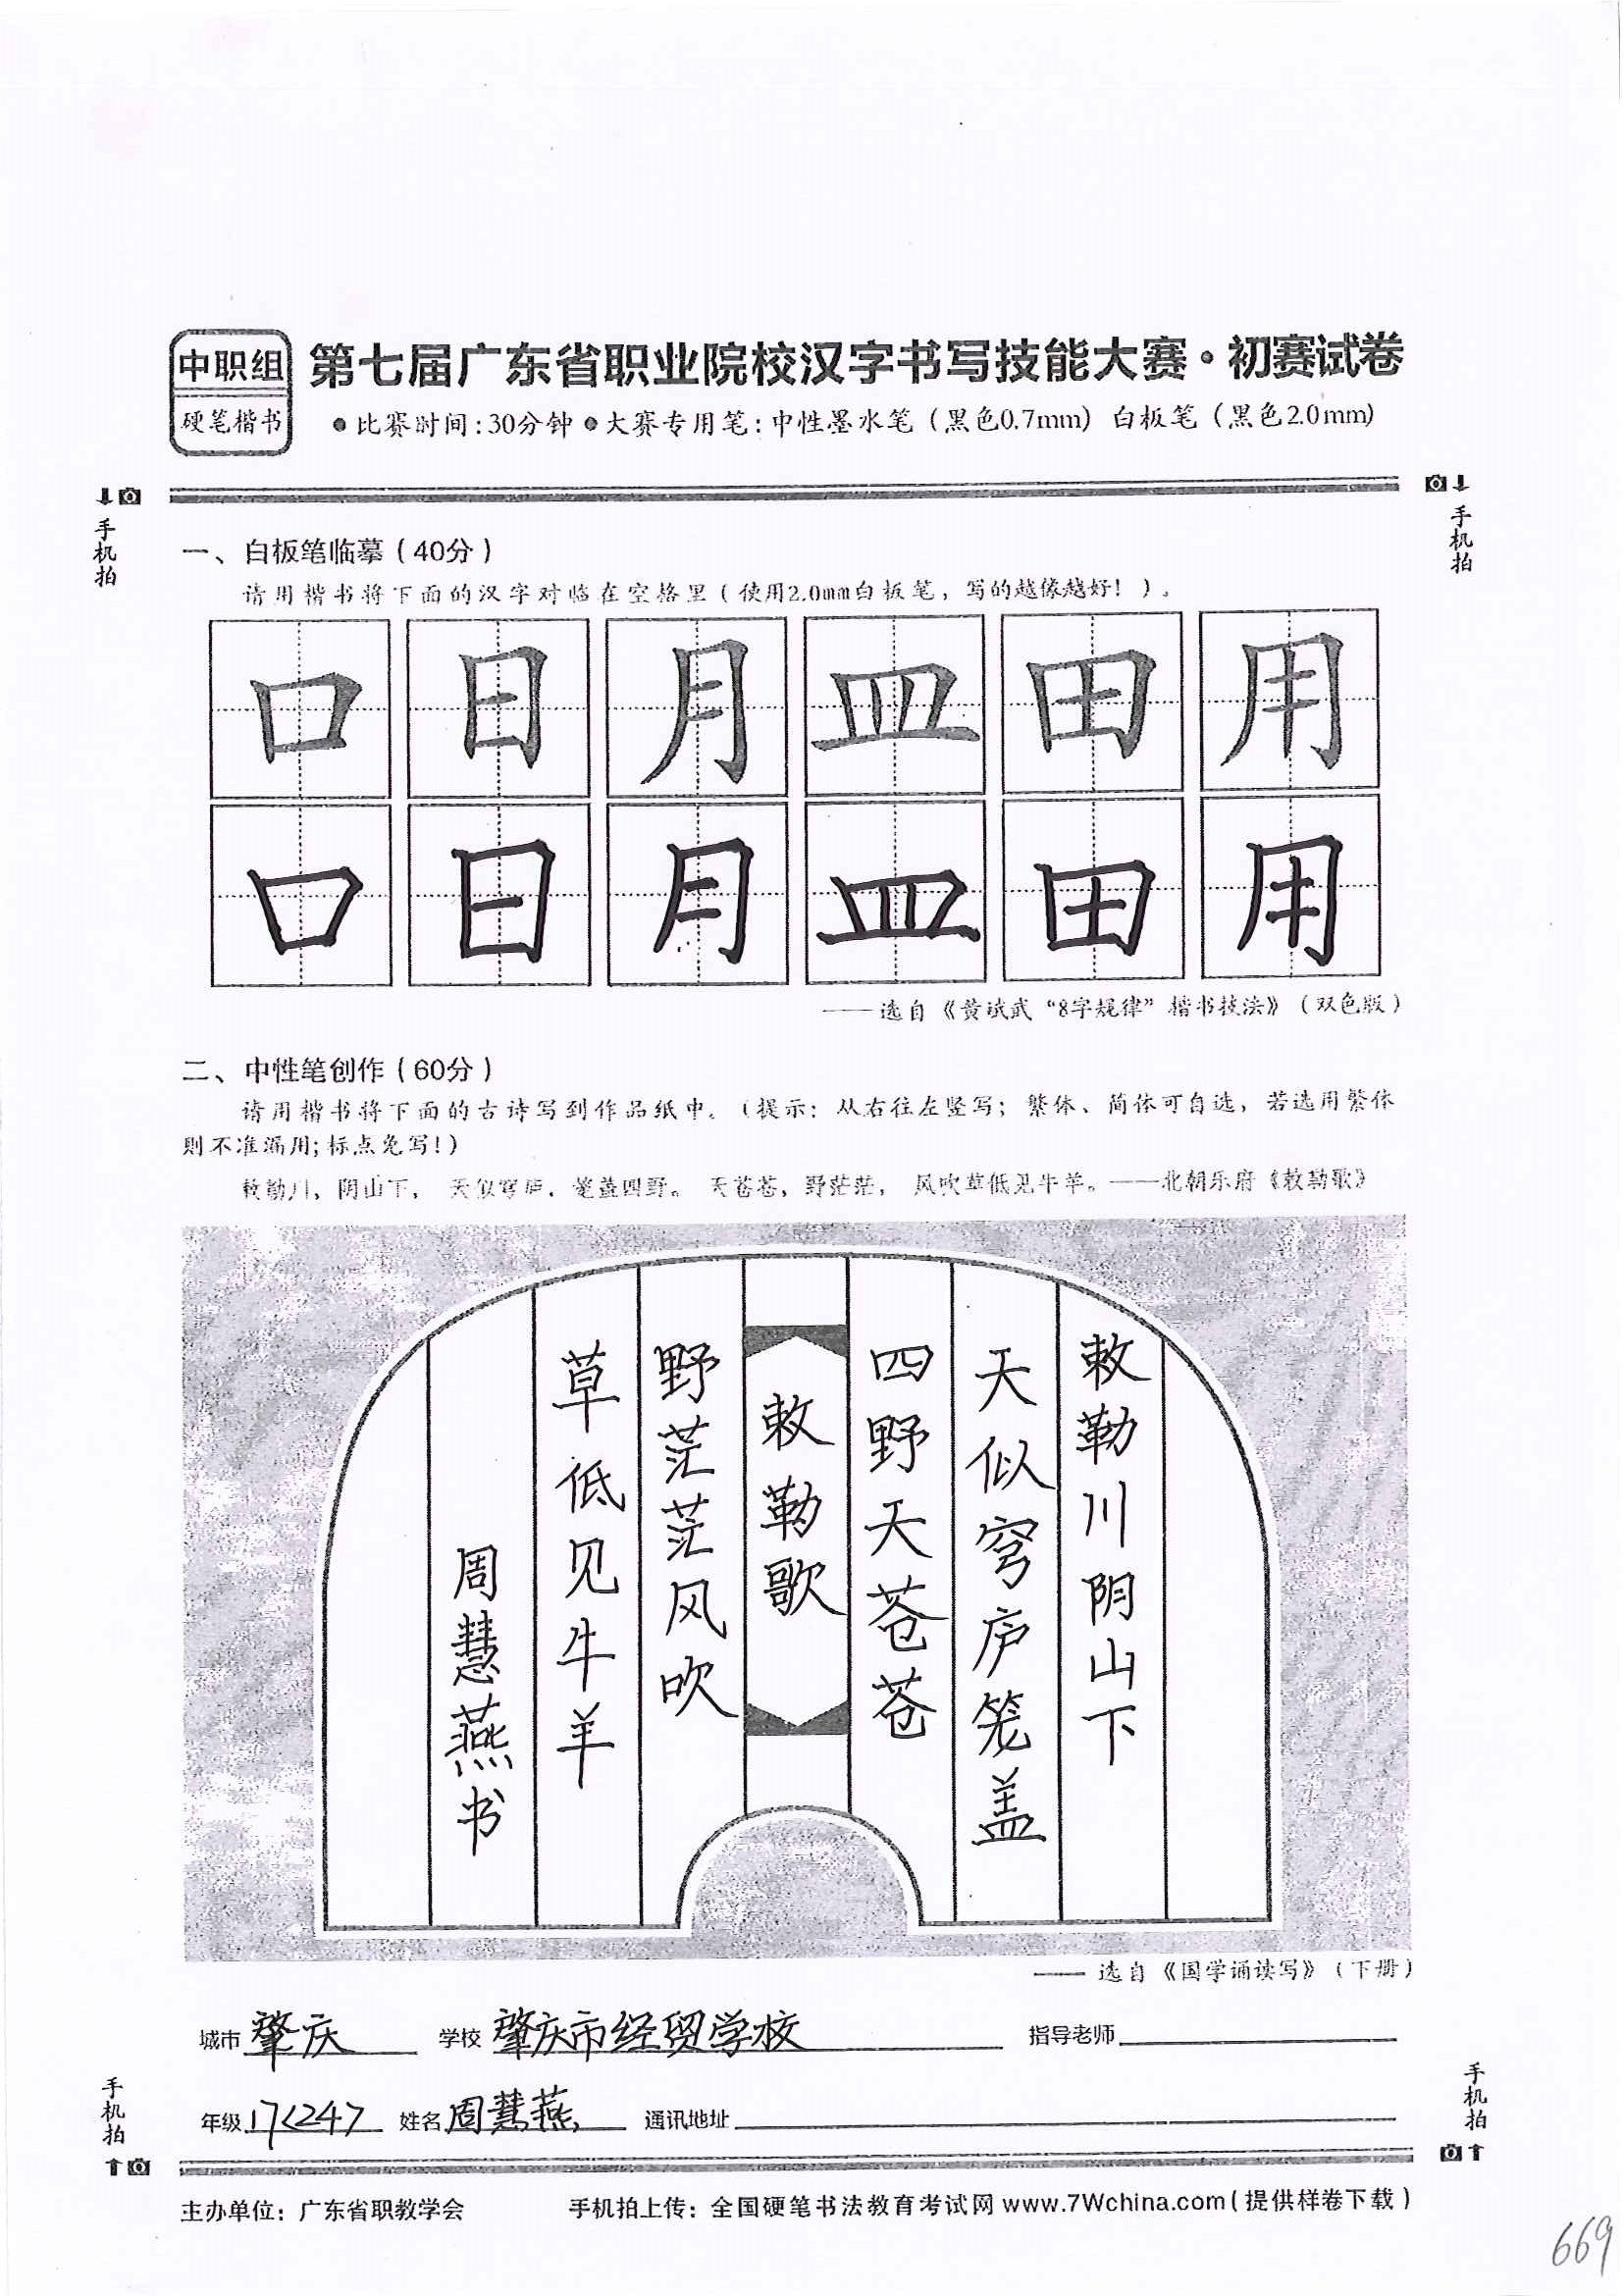 中职组
硬笔楷书
第七届广东省职业院校汉字书写技能大赛·初赛试卷
●比赛时间:30分钟●大赛专用笔:中性墨水笔（黑色0.7mm）白板笔（黑色2.0mm）
手机拍
手机拍
一、白板笔临摹（40分）
请用楷书将下面的汉字对临在空格里（使用2.0mm白板笔，写的越像越好！）。
口 日 月 皿 田 用
口 日 月 皿 田 用
——选自《黄斌武“8字规律”楷书技法》（双色版）
二、中性笔创作（60分）
请用楷书将下面的古诗写到作品纸中。（提示：从右往左竖写；繁体、简体可自选，若选用繁体
则不准漏用;标点免写！）
敕勒川，阴山下，天似穹庐，笼盖四野。天苍苍，野茫茫，风吹草低见牛羊。——北朝乐府《敕勒歌》
敕勒川阴山下
天似穹庐笼盖
四野天苍苍
敕勒歌
野茫茫风吹
草低见牛羊
周慧燕书
—— 选自《国学诵读写》（下册）
城市 肇庆 学校 肇庆市经贸学校 指导老师
年级 17C247 姓名 周慧燕 通讯地址
手机拍
手机拍
主办单位：广东省职教学会 手机拍上传：全国硬笔书法教育考试网 www.7Wchina.com（提供样卷下载）
669